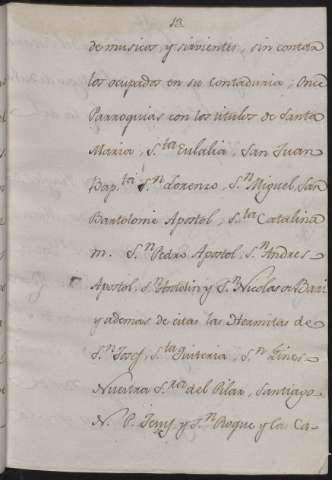 13.
de musicos, y sirvientes, sin contar
los ocupados en su Contaduria, Once
Parroquias con los titulos de Santa
Maria, S.ta Eulalia, San Juan
Bap.ta S.n Lorenzo, S.n Miguel, San
Bartolomè Apostol, S.ta Catalina
m. S.n Pedro Apostol, S.n Andres
Apostol, S.n Antolin y S.n Nicolas de Bari
y ademas de estas las Hermitas de
S.n Josef, S.ta Quiteria, S.n Ginès
Nuestra S.ra del Pilar, Santiago
N. P. Jesus y S.n Roque y las Ca-